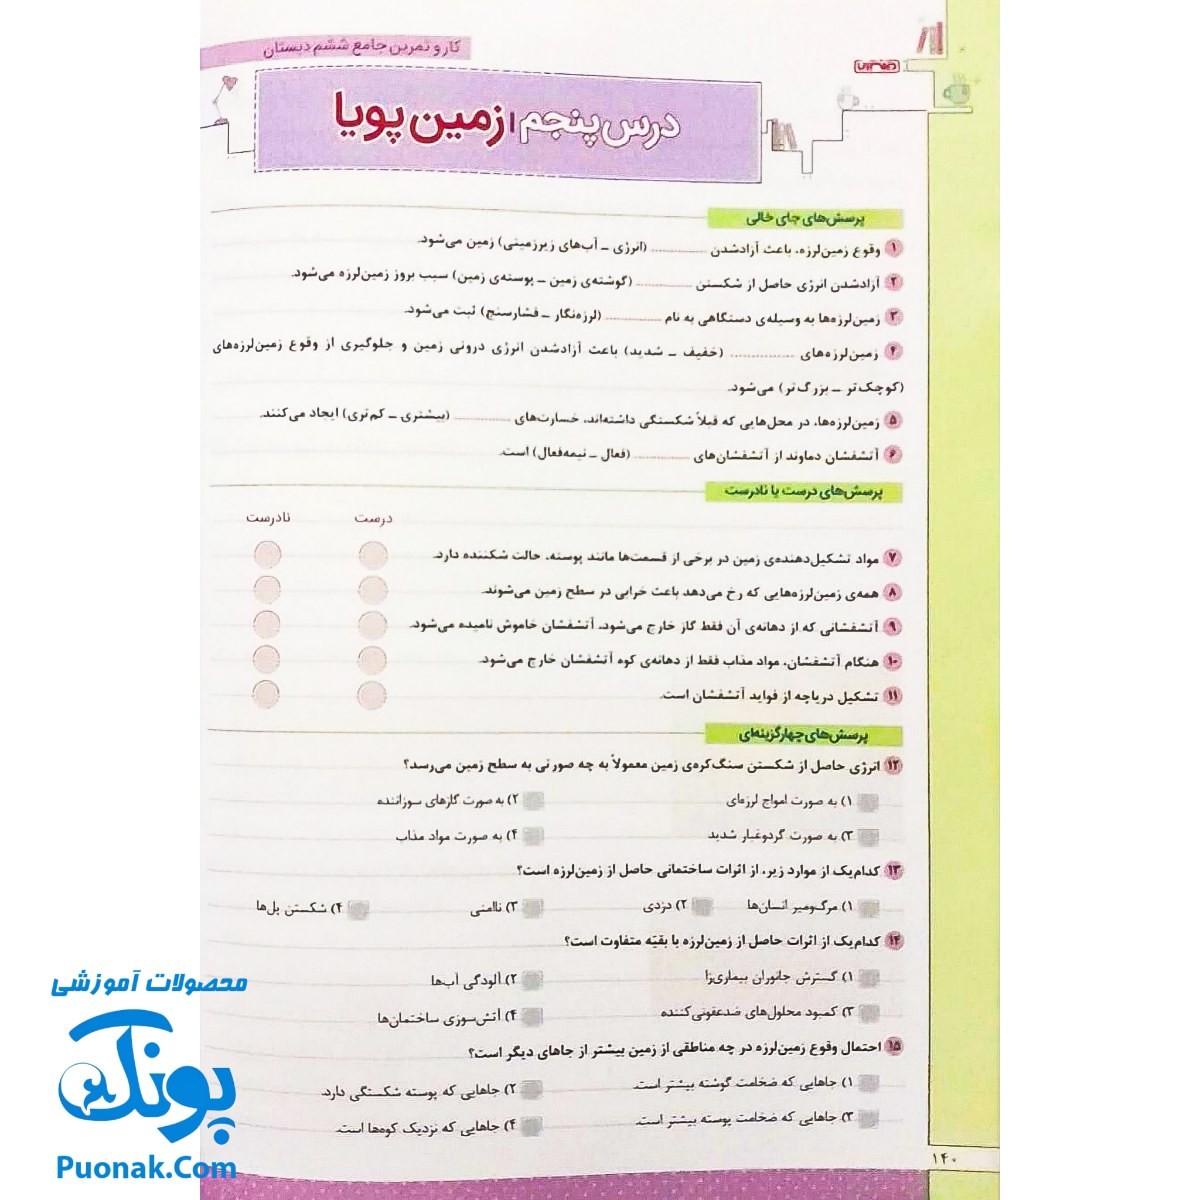 کار و تمرین جامع ششم دبستان
درس پنجم | زمین پویا
پرسش‌های جای خالی
۱ وقوع زمین‌لرزه، باعث آزادشدن ............ (انرژی ـ آب‌های زیرزمینی) زمین می‌شود.
۲ آزادشدن انرژی حاصل از شکستن ............ (گوشته‌ی زمین ـ پوسته‌ی زمین) سبب بروز زمین‌لرزه می‌شود.
۳ زمین‌لرزه‌ها به وسیله‌ی دستگاهی به نام ............ (لرزه‌نگار ـ فشارسنج) ثبت می‌شود.
۴ زمین‌لرزه‌های ............ (خفیف ـ شدید) باعث آزادشدن انرژی درونی زمین و جلوگیری از وقوع زمین‌لرزه‌های
(کوچک‌تر ـ بزرگ‌تر) می‌شود.
۵ زمین‌لرزه‌ها، در محل‌هایی که قبلاً شکستگی داشته‌اند، خسارت‌های ............ (بیشتری ـ کم‌تری) ایجاد می‌کنند.
۶ آتشفشان دماوند از آتشفشان‌های ............ (فعال ـ نیمه‌فعال) است.
پرسش‌های درست یا نادرست
درست نادرست
۷ مواد تشکیل‌دهنده‌ی زمین در برخی از قسمت‌ها مانند پوسته، حالت شکننده دارد.
۸ همه‌ی زمین‌لرزه‌هایی که رخ می‌دهد باعث خرابی در سطح زمین می‌شوند.
۹ آتشفشانی که از دهانه‌ی آن فقط گاز خارج می‌شود، آتشفشان خاموش نامیده می‌شود.
۱۰ هنگام آتشفشان، مواد مذاب فقط از دهانه‌ی کوه آتشفشان خارج می‌شود.
۱۱ تشکیل دریاچه از فواید آتشفشان است.
پرسش‌های چهارگزینه‌ای
۱۲ انرژی حاصل از شکستن سنگ‌کره‌ی زمین معمولاً به چه صورتی به سطح زمین می‌رسد؟
۱) به صورت امواج لرزه‌ای ۲) به صورت گازهای سوزاننده
۳) به صورت گردوغبار شدید ۴) به صورت مواد مذاب
۱۳ کدام‌یک از موارد زیر، از اثرات ساختمانی حاصل از زمین‌لرزه است؟
۱) مرگ‌ومیر انسان‌ها ۲) دزدی ۳) ناامنی ۴) شکستن پل‌ها
۱۴ کدام‌یک از اثرات حاصل از زمین‌لرزه با بقیّه متفاوت است؟
۱) گسترش جانوران بیماری‌زا ۲) آلودگی آب‌ها
۳) کمبود محلول‌های ضدعفونی‌کننده ۴) آتش‌سوزی ساختمان‌ها
۱۵ احتمال وقوع زمین‌لرزه در چه مناطقی از زمین بیشتر از جاهای دیگر است؟
۱) جاهایی که ضخامت گوشته بیشتر است. ۲) جاهایی که پوسته شکستگی دارد.
۳) جاهایی که ضخامت پوسته بیشتر است. ۴) جاهایی که نزدیک کوه‌ها است.
۱۴۰
محصولات آموزشی
پونک
Puonak.Com